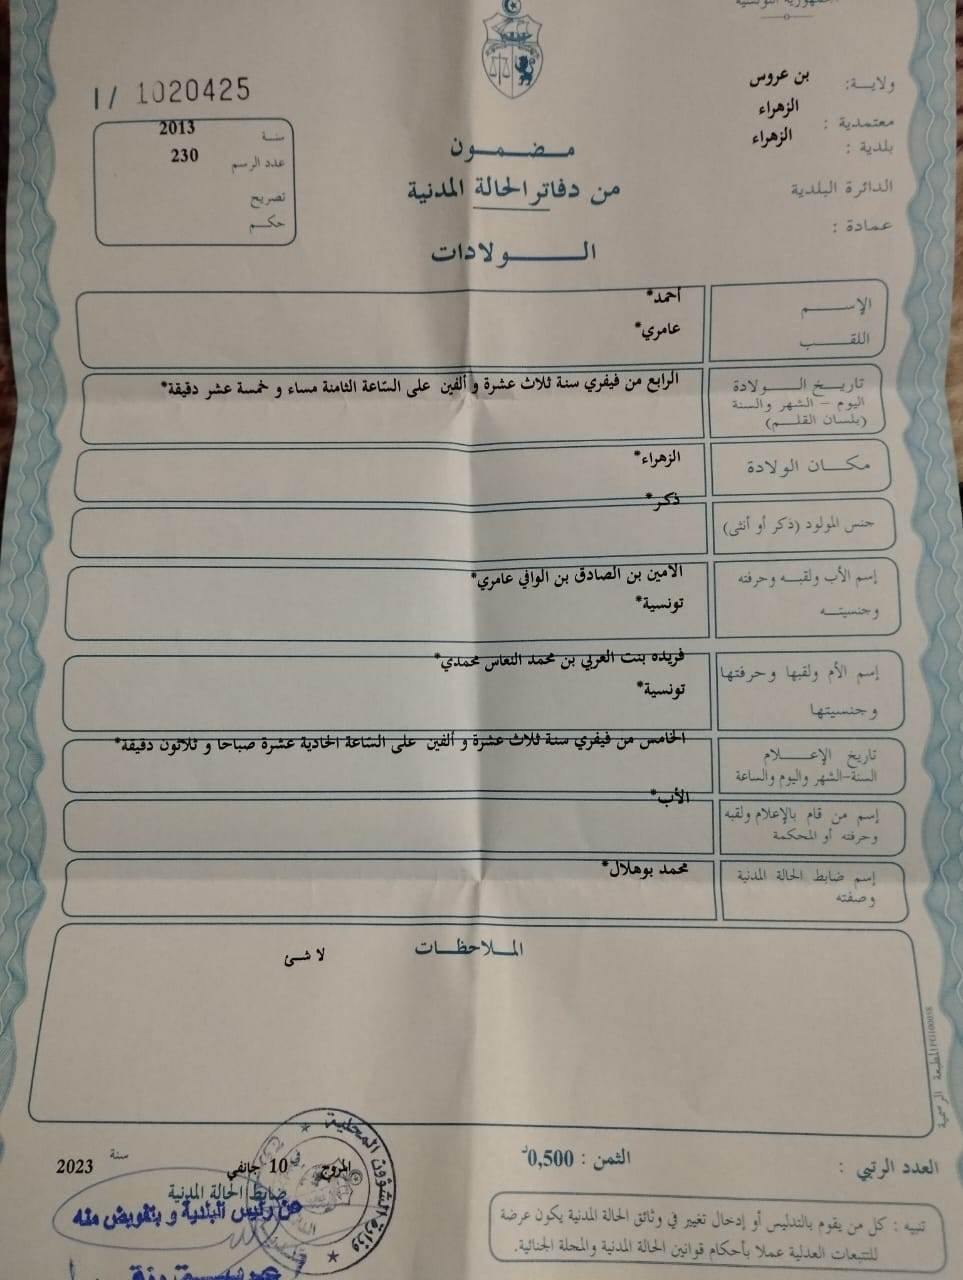 الجمهورية التونسية
ولاية: بن عروس
معتمدية : الزهراء
بلدية : الزهراء
الدائرة البلدية
عمادة :
I / 1020425
سنة 2013
عدد الرسم 230
تصريح
حكم
مضمون
من دفاتر الحالة المدنية
الولادات
الإسم أحمد*
اللقب عامري*
تاريخ الولادة
اليوم – الشهر والسنة
(بلسان القلم)
الرابع من فيفري سنة ثلاث عشرة و ألفين على الساعة الثامنة مساء و خمسة عشر دقيقة*
مكان الولادة الزهراء*
جنس المولود (ذكر أو أنثى) ذكر*
إسم الأب ولقبه وحرفته الامين بن الصادق بن الوافي عامري*
وجنسيته تونسية*
إسم الأم ولقبها وحرفتها فريده بنت العربي بن محمد النعاس محمدي*
وجنسيتها تونسية*
تاريخ الإعلام
السنة-الشهر واليوم والساعة
الخامس من فيفري سنة ثلاث عشرة و ألفين على الساعة الحادية عشرة صباحا و ثلاثون دقيقة*
إسم من قام بالإعلام ولقبه
وحرفته أو المحكمة
الأب*
إسم ضابط الحالة المدنية
وصفته
محمد بوهلال*
الملاحظات
لا شئ
المطبعة الرسمية
العدد الرتبي :
الثمن : 0,500د
المروج في 10 جانفي سنة 2023
ضابط الحالة المدنية
عن رئيس البلدية و بتفويض منه
وزارة الشؤون المحلية
تنبيه : كل من يقوم بالتدليس أو إدخال تغيير في وثائق الحالة المدنية يكون عرضة
للتتبعات العدلية عملا بأحكام قوانين الحالة المدنية والمجلة الجنائية.